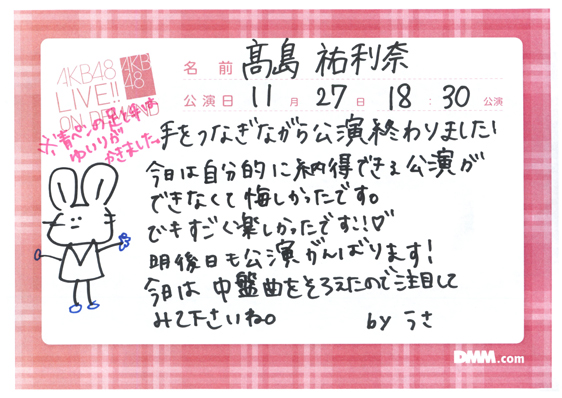 AKB48
LIVE!!
ON DEMAND
AKB
48
名前 髙島 祐利奈
公演日 11月27日 18:30公演
※青ペンの足と体は
ゆいりが
かきました。
手をつなぎながら公演終わりました!
今日は自分的に納得できる公演が
できなくて悔しかったです。
でもすごく楽しかったです!!♡
明後日も公演がんばります!
今日は中盤曲をそろえたので注目して
みて下さいね。 by うさ
DMM.com